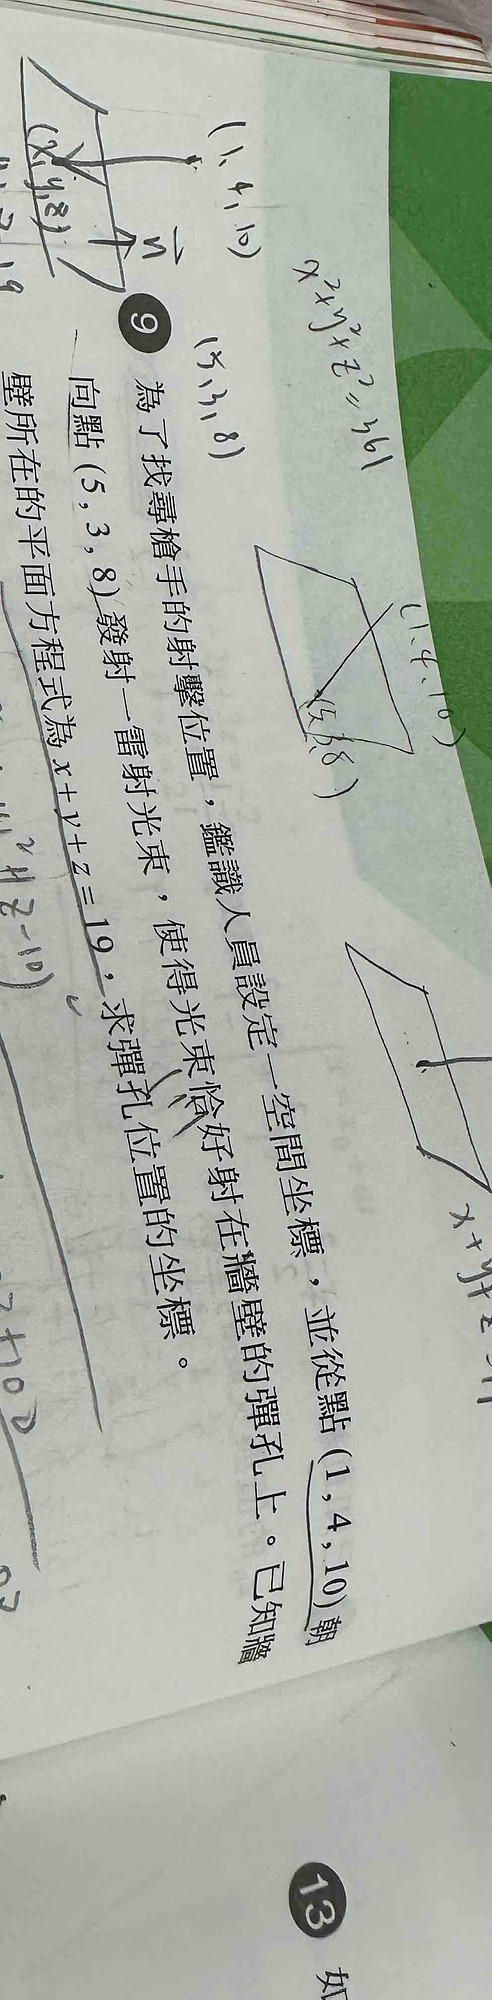 x²+y²+z²=361
(1,4,10)
(5,3,8)
(1,4,10)
(5,3,8)
(x,y,z)
n
9 為了找尋槍手的射擊位置，鑑識人員設定一空間坐標，並從點(1,4,10)朝
向點(5,3,8)發射一雷射光束，使得光束恰好射在牆壁的彈孔上。已知牆
壁所在的平面方程式為x+y+z=19，求彈孔位置的坐標。
13 如